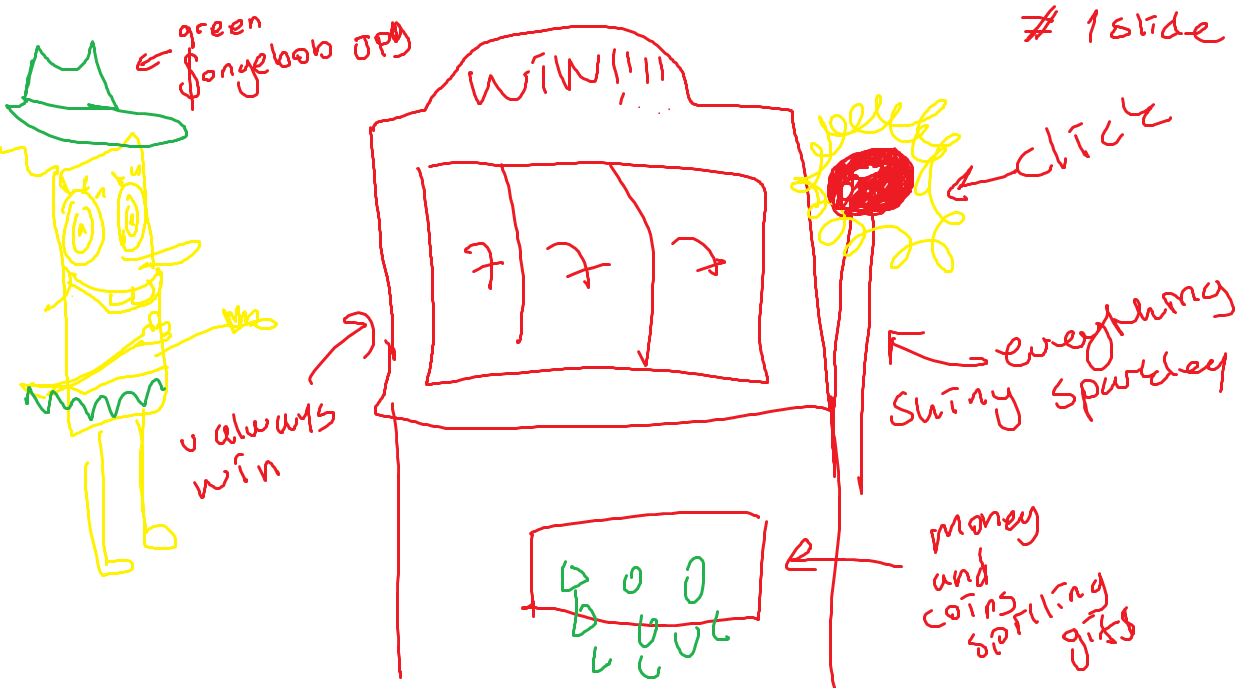 green
$ongebob JPG
WiN!!!!
# 1 slide
click
7 7 7
everything
shiny sparkley
u always
win
money
and
coins
spilling
gifs